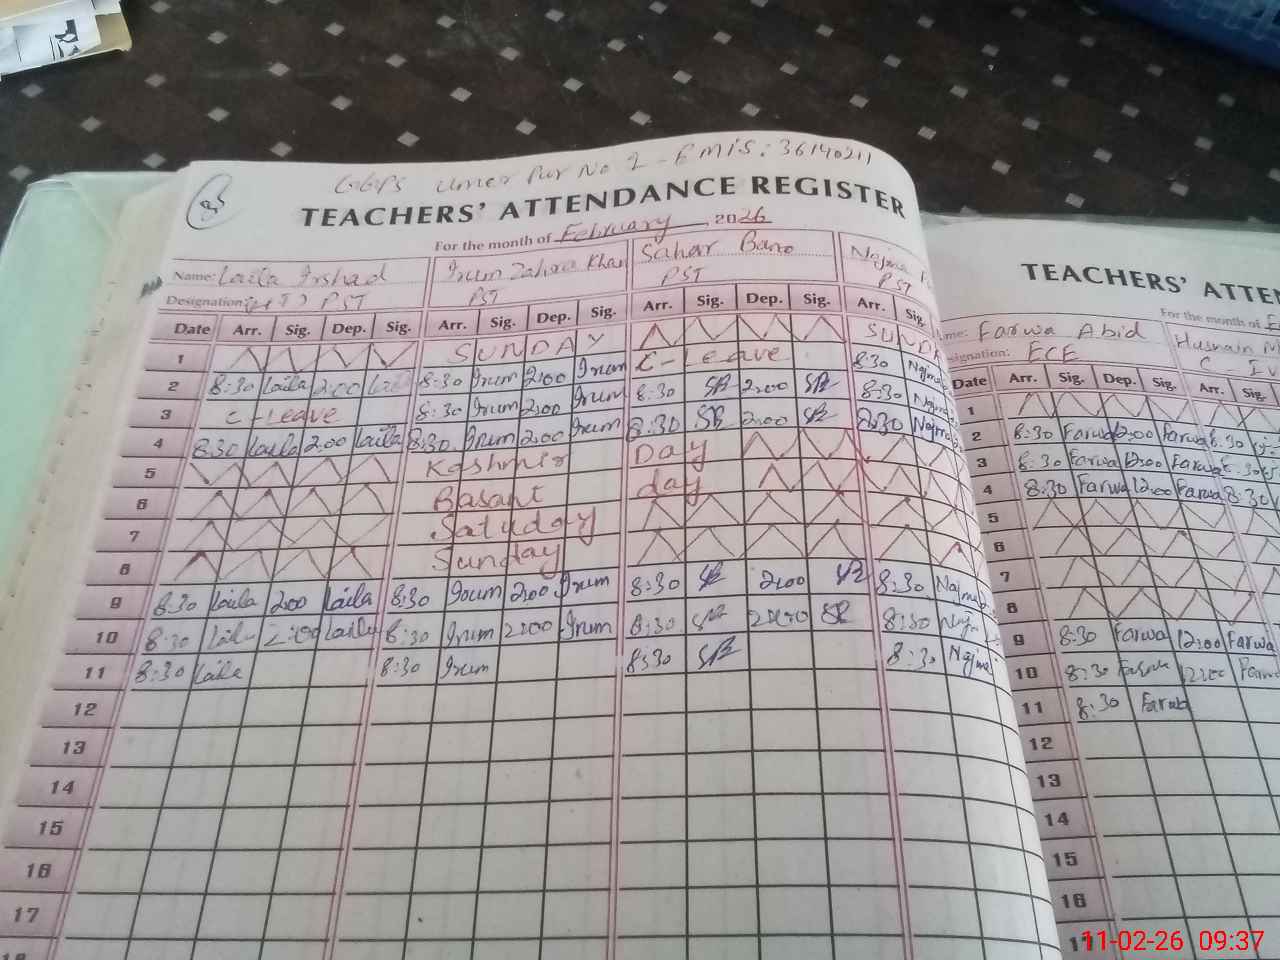 GGPS Umer Pur No. 2 - EMIS: 36140211
TEACHERS' ATTENDANCE REGISTER
For the month of February 2026
Name: Laila Irshad Irum Zahra Khan Sahar Bano Najma
Designation: (HT) PST PST PST PST
Date Arr. Sig. Dep. Sig. Arr. Sig. Dep. Sig. Arr. Sig. Dep. Sig. Arr. Sig.
1 SUNDAY SUNDA
2 8:30 Laila 2:00 Laila 8:30 Irum 2:00 Irum C-Leave 8:30 Najma
3 C-Leave 8:30 Irum 2:00 Irum 8:30 SB 2:00 SB 8:30 Najma
4 8:30 Laila 2:00 Laila 8:30 Irum 2:00 Irum 8:30 SB 2:00 SB 8:30 Najma
5 Kashmir Day
6 Basant day
7 Satuday
8 Sunday
9 8:30 Laila 2:00 Laila 8:30 Irum 2:00 Irum 8:30 SB 2:00 SB 8:30 Najma
10 8:30 Laila 2:00 Laila 8:30 Irum 2:00 Irum 8:30 SB 2:00 SB 8:30 Najma
11 8:30 Laila 8:30 Irum 8:30 SB 8:30 Najma
12
13
14
15
16
17
18
TEACHERS' ATTEN
For the month of
Name: Farwa Abid Husnain
Designation: ECE C - IV
Date Arr. Sig. Dep. Sig. Arr. Sig.
1
2 8:30 Farwa 12:00 Farwa 8:30
3 8:30 Farwa 12:00 Farwa 8:30
4 8:30 Farwa 12:00 Farwa 8:30
5
6
7
8
9 8:30 Farwa 12:00 Farwa
10 8:30 Farwa 12:00 Farwa
11 8:30 Farwa
12
13
14
15
16
17
11-02-26 09:37